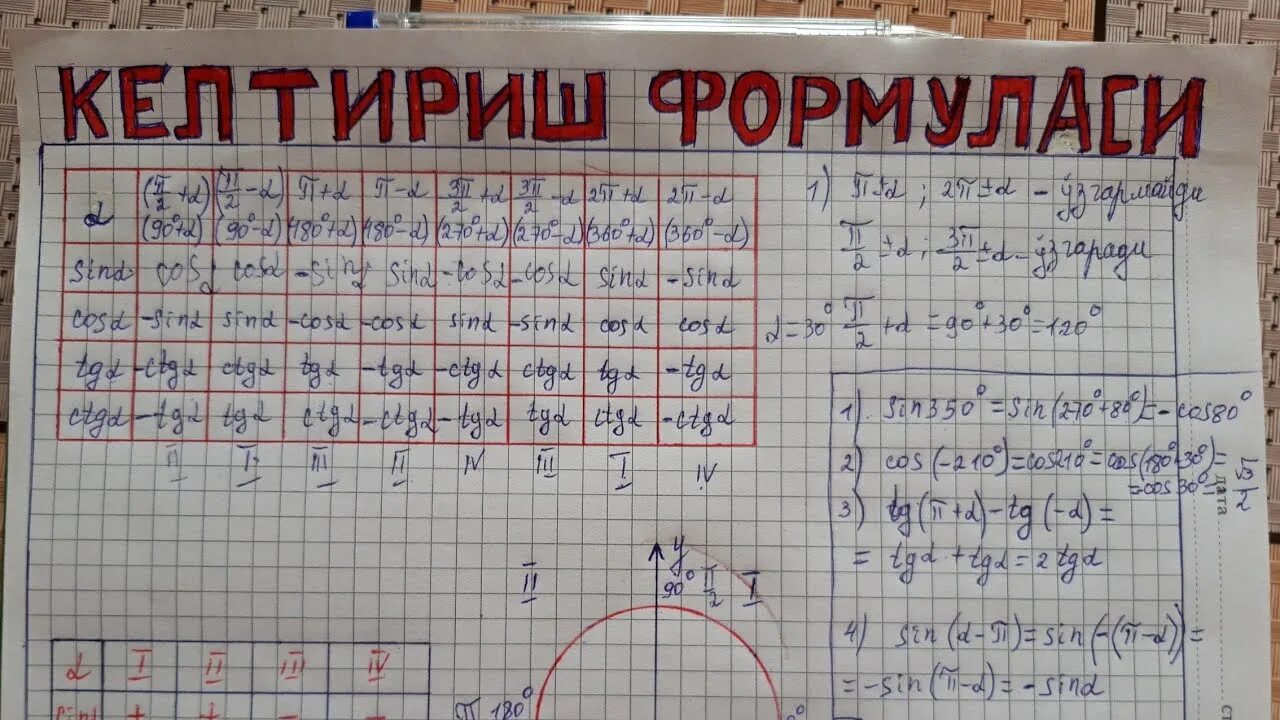 КЕЛТИРИШ ФОРМУЛАСИ
α (π/2+α) (π/2-α) π+α π-α 3π/2+α 3π/2-α 2π+α 2π-α
(90°+α) (90°-α) (180°+α) (180°-α) (270°+α) (270°-α) (360°+α) (360°-α)
sinα cosα cosα -sinα sinα -cosα -cosα sinα -sinα
cosα -sinα sinα -cosα -cosα sinα -sinα cosα cosα
tgα -ctgα ctgα tgα -tgα -ctgα ctgα tgα -tgα
ctgα -tgα tgα ctgα -ctgα -tgα tgα ctgα -ctgα
II I III II IV III I IV
1) π±α ; 2π±α - ўзгармайди
π/2±α ; 3π/2±α - ўзгаради
α=30° π/2+α=90°+30°=120°
1). sin350°=sin(270°+80°)=-cos80°
2) cos(-210°)=cos210°=cos(180°+30°)=
=cos30°=√3/2
3) tg(π+α)-tg(-α)=
= tgα+tgα=2tgα
4) sin(α-π)=sin(-(π-α))=
=-sin(π-α)=-sinα
дата
II y 90° π/2 I
π 180°
α I II III IV
sinα + + - -